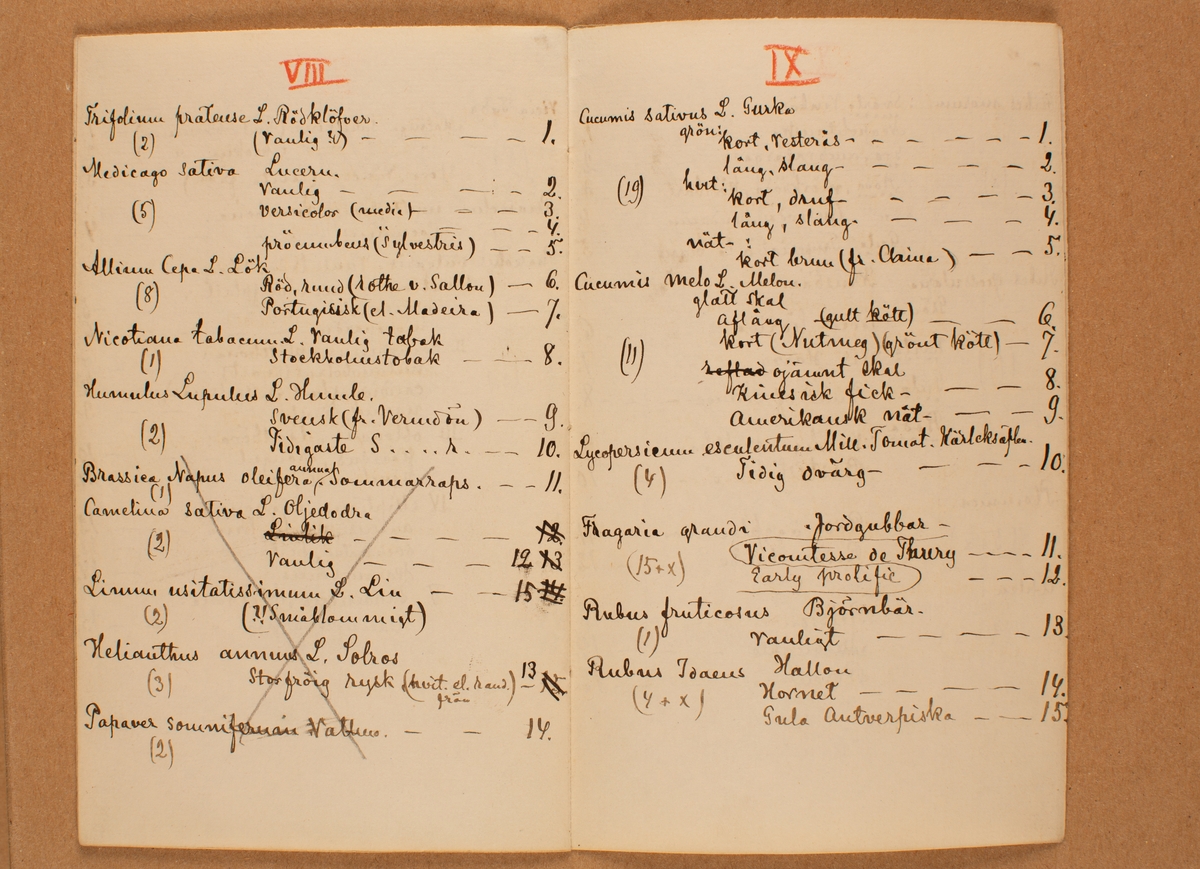 VIII
Trifolium pratense L. Rödklöfver.
(2) (Vanlig ?!) — — — — 1.
Medicago sativa Lucern.
Vanlig — — — — 2.
(5) versicolor (media) — — — 3.
— — 4.
procumbens (Sylvestris) — — 5.
Allium Cepa L. Lök
(8) Röd, rund (rothe v. Sallon) — 6.
Portugisisk (el. Madeira) — 7.
Nicotiana tabacum L. Vanlig tobak
(1) Stockholmstobak — — 8.
Humulus Lupulus L. Humle.
Svensk (fr. Vermdön) — — 9.
(2) Tidigaste S . . . . r. — — 10.
annua
Brassica Napus oleifera, Sommarraps. — — 11.
(1)
Camelina sativa L. Oljedodra
(2) — — — — 12.
Vanlig — — — 12 13
Linum usitatissimum L. Lin — — 15 14
(2) (?! Småblommigt)
Helianthus annuus L. Solros
(3) Storfröig rysk (hvit. el. rand.) 13 — 15
frön
Papaver somniferum Vallmo. — — 14.
(2)
IX
Cucumis sativus L. Gurka
grön: kort, Vesterås- — — — — 1.
lång, slang- — — — — 2.
(19) hvit: kort, druf- — — — — 3.
lång, slang- — — — — 4.
nät- : — — — — 5.
kort brun (fr. China)
Cucumis melo L. Melon.
glatt skal
Aflång (gult kött) — — — 6.
(11) kort (Nutmeg) (grönt kött) — 7.
reflad ojämnt skal
Kinesisk fick- — — — 8.
Amerikansk nät- — — 9.
Lycopersicum esculentum Mill. Tomat. Kärleksäple.
(4) Tidig dvärg- — — — 10.
Fragaria grandi Jordgubbar —
(15+x) Vicomtesse de Thury — — — — 11.
Early prolific — — — 12.
Rubus fruticosus Björnbär.
(1) Vanligt — — — — — 13.
Rubus Idaeus Hallon
(4 + x) Hornet — — — — — 14.
Gula Antverpiska — — — 15.